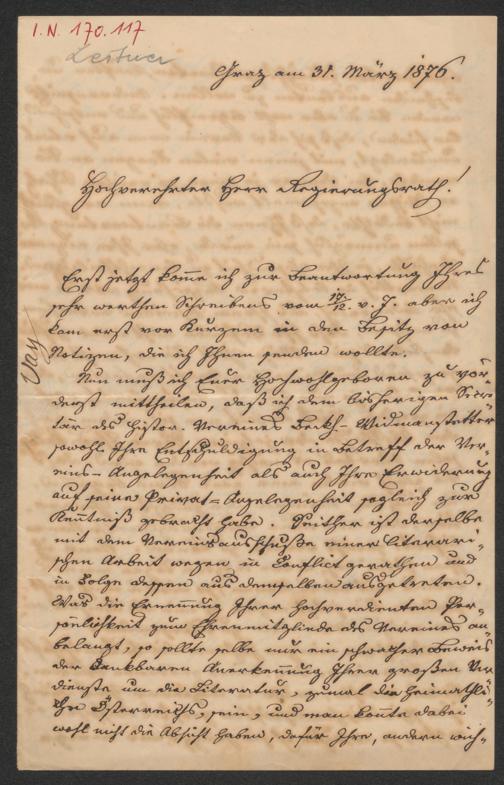 I. N. 170.117
Leitner
Graz am 31. März 1876.
Hochverehrter Herr Regierungsrath!
Erst jetzt komme ich zur Beantwortung Ihres
sehr werthen Schreibens vom 19./12. v. J. aber ich
kam erst vor Kurzem in den Besitz von
Notizen, die ich Ihnen senden wollte.
Nun muß ich Euer Hochwohlgeboren zu vör-
derst mittheilen, daß ich dem bisherigen Secre-
tär des histor. Vereines Beckh-Widmanstetter
sowohl Ihre Entschuldigung in Betreff der Ver-
eins-Angelegenheit als auch Ihre Erwiderung
auf seine Privat-Angelegenheit sogleich zur
Kenntniß gebracht habe. Seither ist derselbe
mit dem Vereinsausschuße einer literari-
schen Arbeit wegen in Conflict gerathen und
in Folge dessen aus demselben ausgetreten.
Was die Ernennung Ihrer hochverdienten Per-
sönlichkeit zum Ehrenmitgliede des Vereines an-
belangt, so sollte selbe nur ein schwacher Beweis
der dankbaren Anerkennung Ihrer großen Ver-
dienste um die Literatur, zumal die heimathli-
che Österreichs, sein, und man konnte dabei
wohl nicht die Absicht haben, dafür Ihre, andern wich-